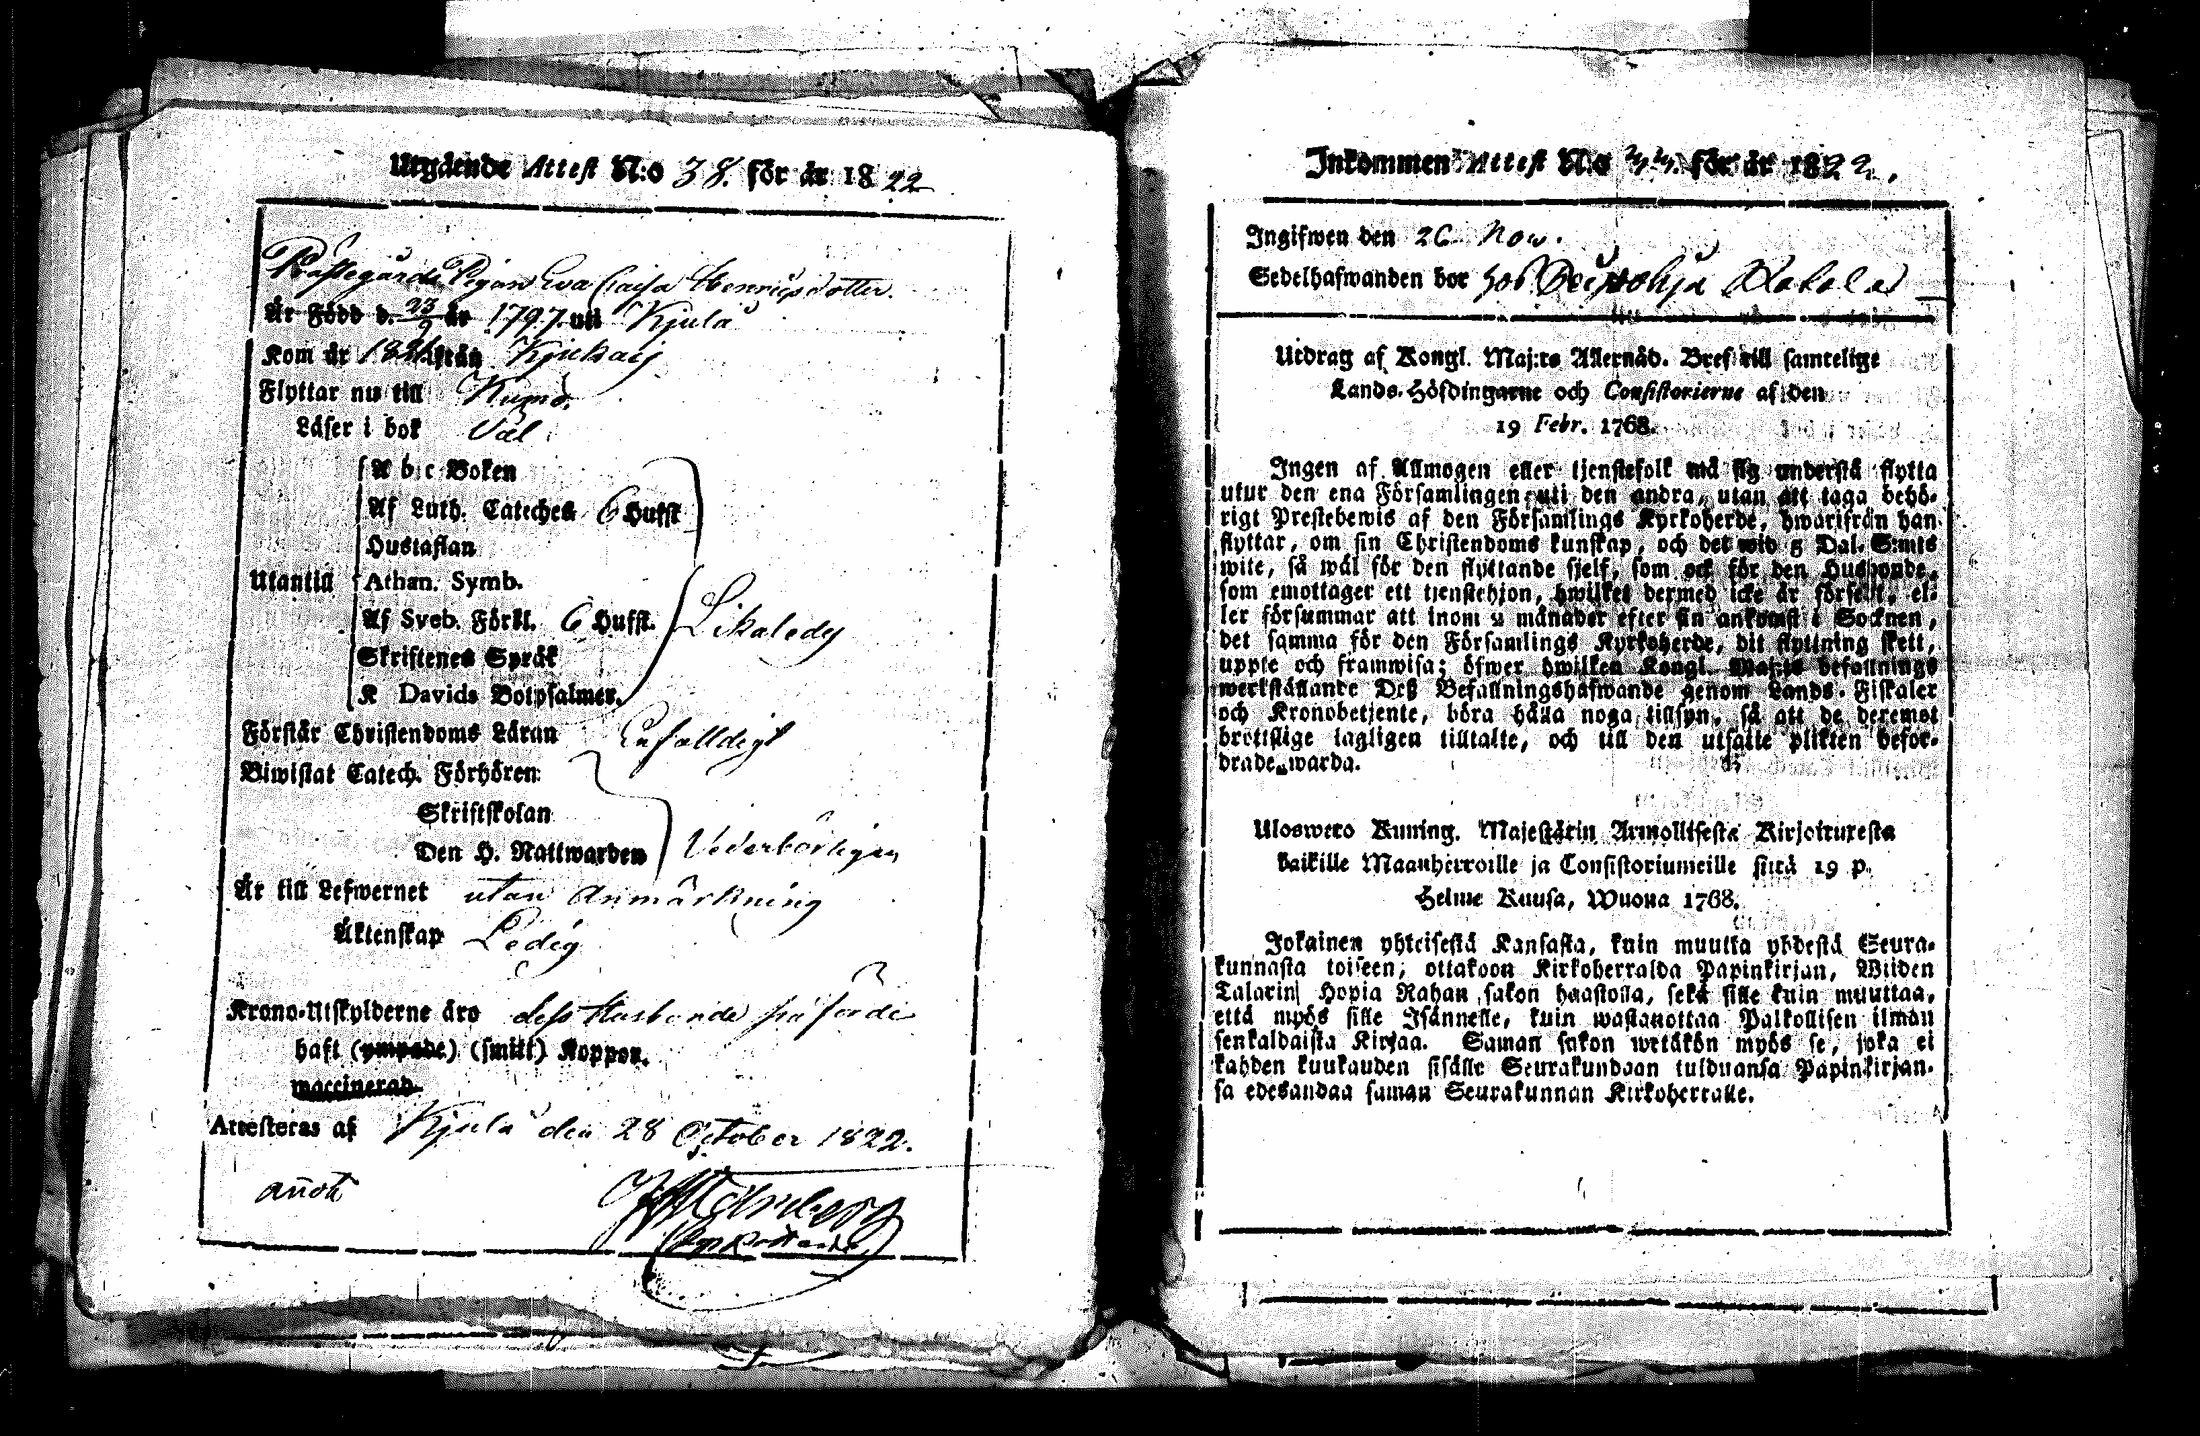 Utgående Attest N:o 38. för år 1822
Prästegårds Pigan Eva Caisa Henricsdotter.
Är Född d. 23/9 år 1797. uti Kjula
Kom år 1821 från Kjukais
Flyttar nu till Kumo.
Läser i bok Väl
A b c Boken
Af Luth. Cateches 6 Hufst.
Hustaflan
Utantill Athan. Symb.
Af Sveb. Förkl. 6 Hufst. Likaledes
Skriftenes Språk
K Davids Botpsalmer.
Förstår Christendoms Läran Enfalldigt
Biwistat Catech. Förhören
Skriftskolan
Den H. Nattwarden Vederbörligen
Är till Lefwernet utan Anmärkning
Äktenskap Ledig
Krono-Utskylderne äro dess Husbonde påförde
haft (ympade) (smitt) Koppor.
waccinerad.
Attesteras af Kjula den 28 October 1822.
Inkommen Attest N:o för år 1822.
Ingifwen den 26 Nov.
Sedelhafwanden bor hos
Utdrag af Kongl. Maj:ts Allernåd. Bref till samtelige
Lands-Höfdingarne och Consistorierne af den
19 Febr. 1768.
Ingen af Allmogen eller tjenstefolk må sig understå flytta
utur den ena Församlingen uti den andra, utan att taga behö-
rigt Prestebewis af den Församlings Kyrkoherde, hwarifrån han
flyttar, om sin Christendoms kunskap, och det wid 5 Dal. S:mts
wite, så wäl för den flyttande sjelf, som ock för den Husbonde,
som emottager ett tjenstehjon, hwilket dermed icke är försedt, el-
ler försummar att inom 2 månader efter sin ankomst i Socknen,
det samma för den Församlings Kyrkoherde, dit flyttning skett,
uppte och framwisa; öfwer hwilken Kongl. Maj:ts befallnings
werkställande Deß Befallningshafwande genom Lands-Fiskaler
och Kronobetjente, böra hålla noga tillsyn, så att de deremot
brottslige lagligen tilltalte, och till den utsatte plikten befor-
drade warda.
Ulosweto Kuning. Majestätin Armollisesta Kirjoituxesta
kaikille Maanherroille ja Consistoriumeille siitä 19 p.
Helme Kuusa, Wuona 1768.
Jokainen yhteisestä Kansasta, kuin muutta yhdestä Seura-
kunnasta toiseen, ottakoon Kirkoherralda Papinkirjan, Wiiden
Talarin Hopia Rahan sakon haastolla, sekä sille kuin muuttaa,
että myös sille Isännelle, kuin wastanottaa Palkollisen ilman
senkaldaista Kirjaa. Saman sakon wetäkön myös se, joka ei
kahden kuukauden sisälle Seurakundaan tulduansa Papinkirjan-
sa edesandaa saman Seurakunnan Kirkoherralle.